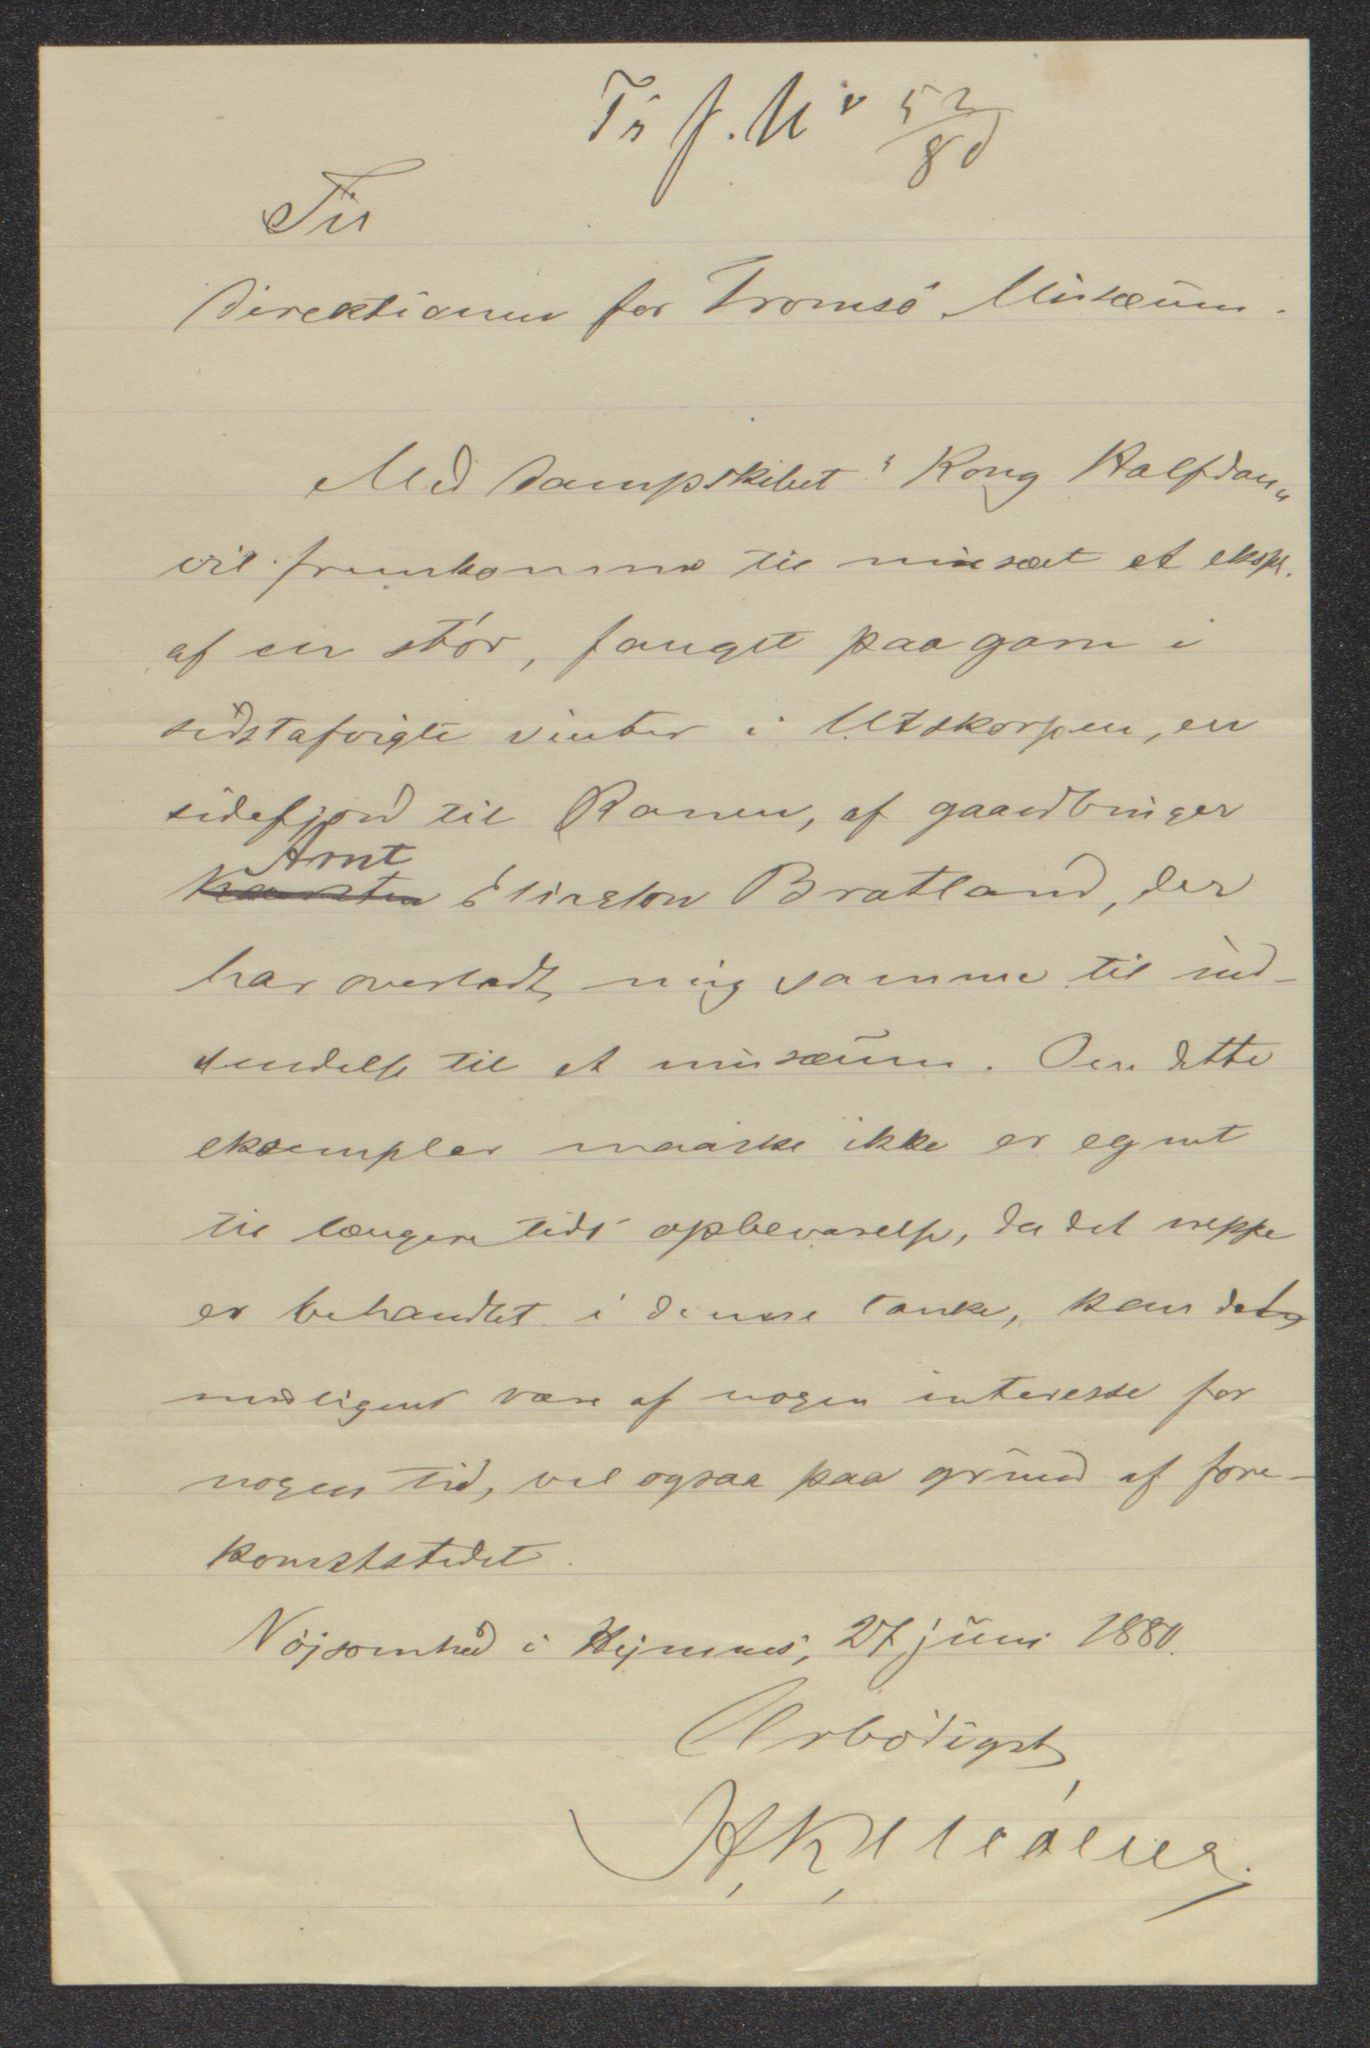 Ts J. Nr 52/80
Til
direktionen for Tromsö Musæum.
Med dampskibet "Kong Halfdan"
vil fremkomme til musæet et ekspl.
af en stör, fanget paa garn i
sidstafvigte vinter i Utskarpen, en
sidefjord til Ranen, af gaardbruger
Arnt
Eliassen Bratland, der
har overladt mig samme til ind-
sendelse til et musæum. Om dette
eksemplar maaske ikke er egnet
til længere tids opbevarelse, da det neppe
er behandlet i denne tanke, kan det
muligens være af nogen interesse for
nogen tid, vel ogsaa paa grund af fore-
komststedet.
Nöjsomhed i Hemnes, 27 juni 1880.
Ærbödigst
H. K.